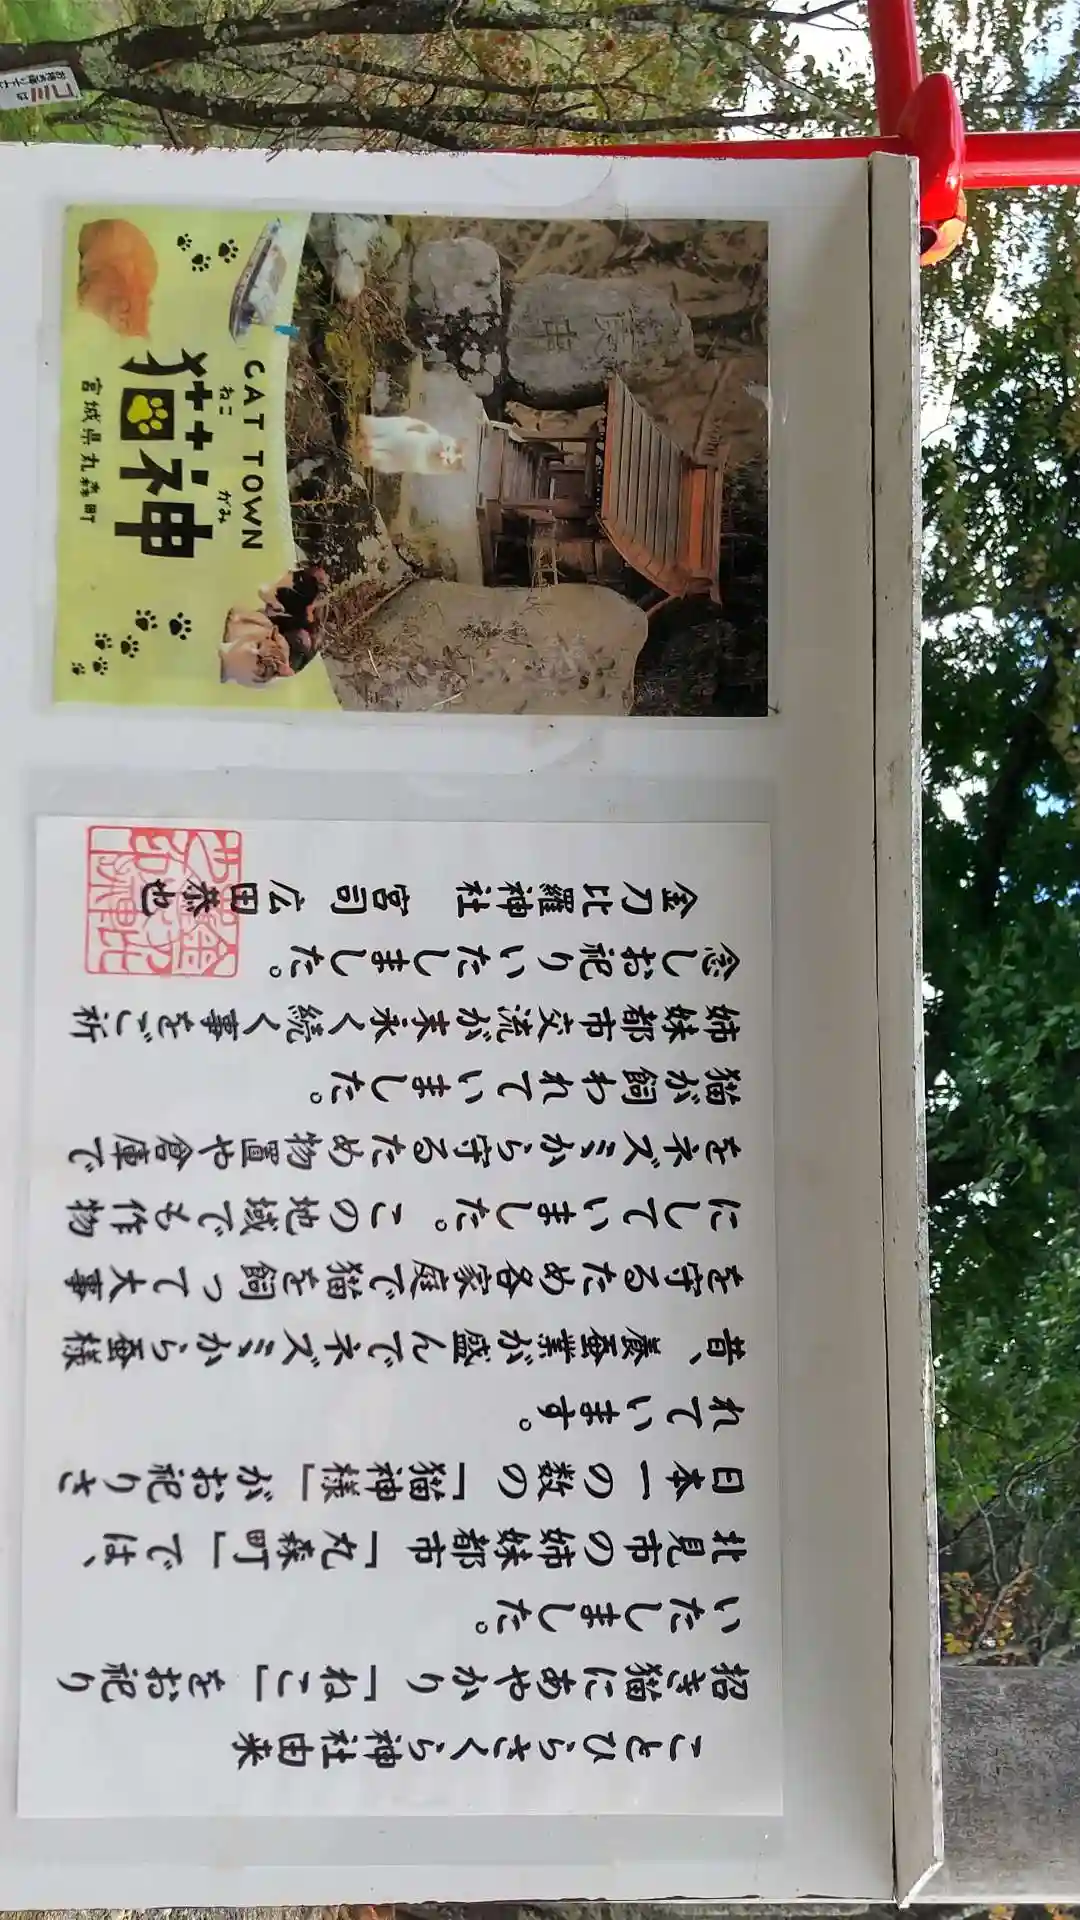 ことひらさくら神社由来
招き猫にあやかり「ねこ」をお祀り
いたしました。
北見市の姉妹都市「丸森町」では、
日本一の数の「猫神様」がお祀りさ
れています。
昔、養蚕業が盛んでネズミから蚕様
を守るため各家庭で猫を飼って大事
にしていました。この地域でも作物
をネズミから守るため物置や倉庫で
猫が飼われていました。
姉妹都市交流が末永く続く事をご祈
念しお祀りいたしました。
金刀比羅神社 宮司 広田恭也
CAT TOWN
ねこ がみ
猫神
宮城県丸森町
ゴミは